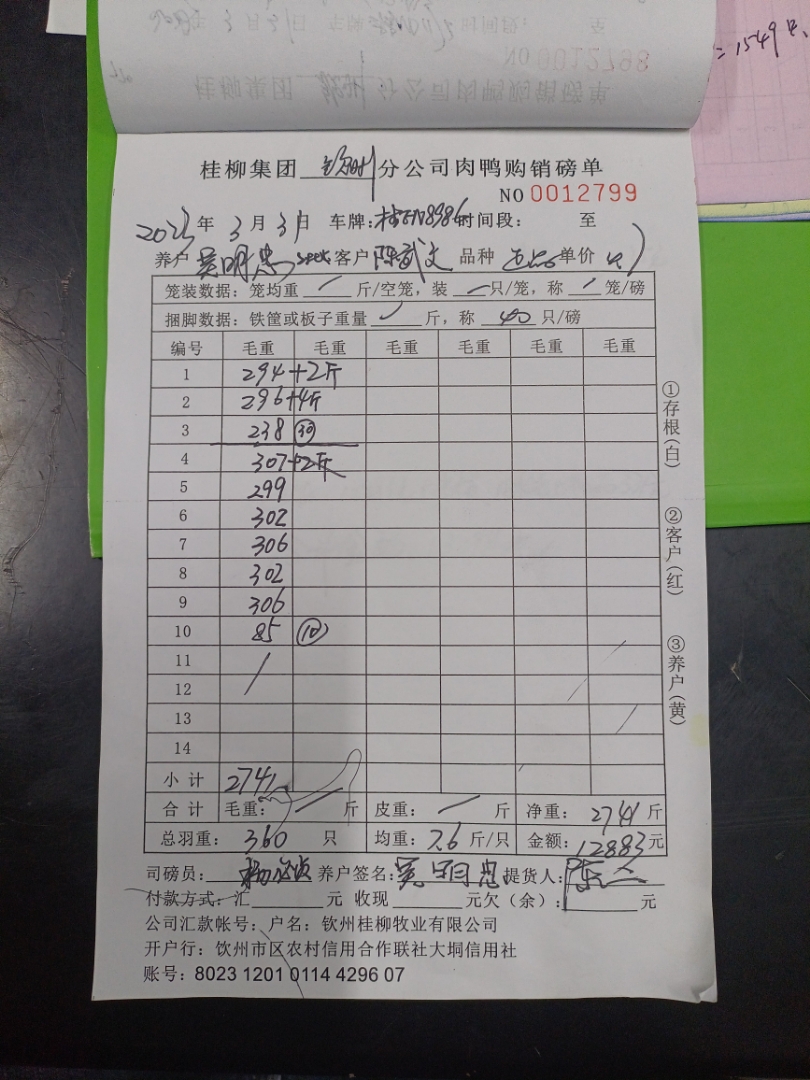 = 1549
NO 0012798
桂柳集团 分公司肉鸭购销磅单
桂柳集团 钦州 分公司肉鸭购销磅单
NO 0012799
2023 年 3 月 31 日 车牌: 时间段: 至
养户 吴明忠 客户 陈武文 品种 单价
笼装数据: 笼均重 斤/空笼, 装 只/笼, 称 笼/磅
捆脚数据: 铁筐或板子重量 斤, 称 40 只/磅
编号 毛重 毛重 毛重 毛重 毛重 毛重
1 294+2斤
2 296+4斤
3 238 30
4 307+2斤
5 299
6 302
7 306
8 302
9 306
10 85 10
11
12
13
14
小计 2741
合计 毛重: 斤 皮重: 斤 净重: 2741 斤
总羽重: 360 只 均重: 7.6 斤/只 金额: 12883 元
司磅员: 养户签名: 吴明忠 提货人:
付款方式: 汇 元 收现 元欠(余): 元
公司汇款帐号: 户名: 钦州桂柳牧业有限公司
开户行: 钦州市区农村信用合作联社大垌信用社
账号: 8023 1201 0114 4296 07
①存根(白)
②客户(红)
③养户(黄)